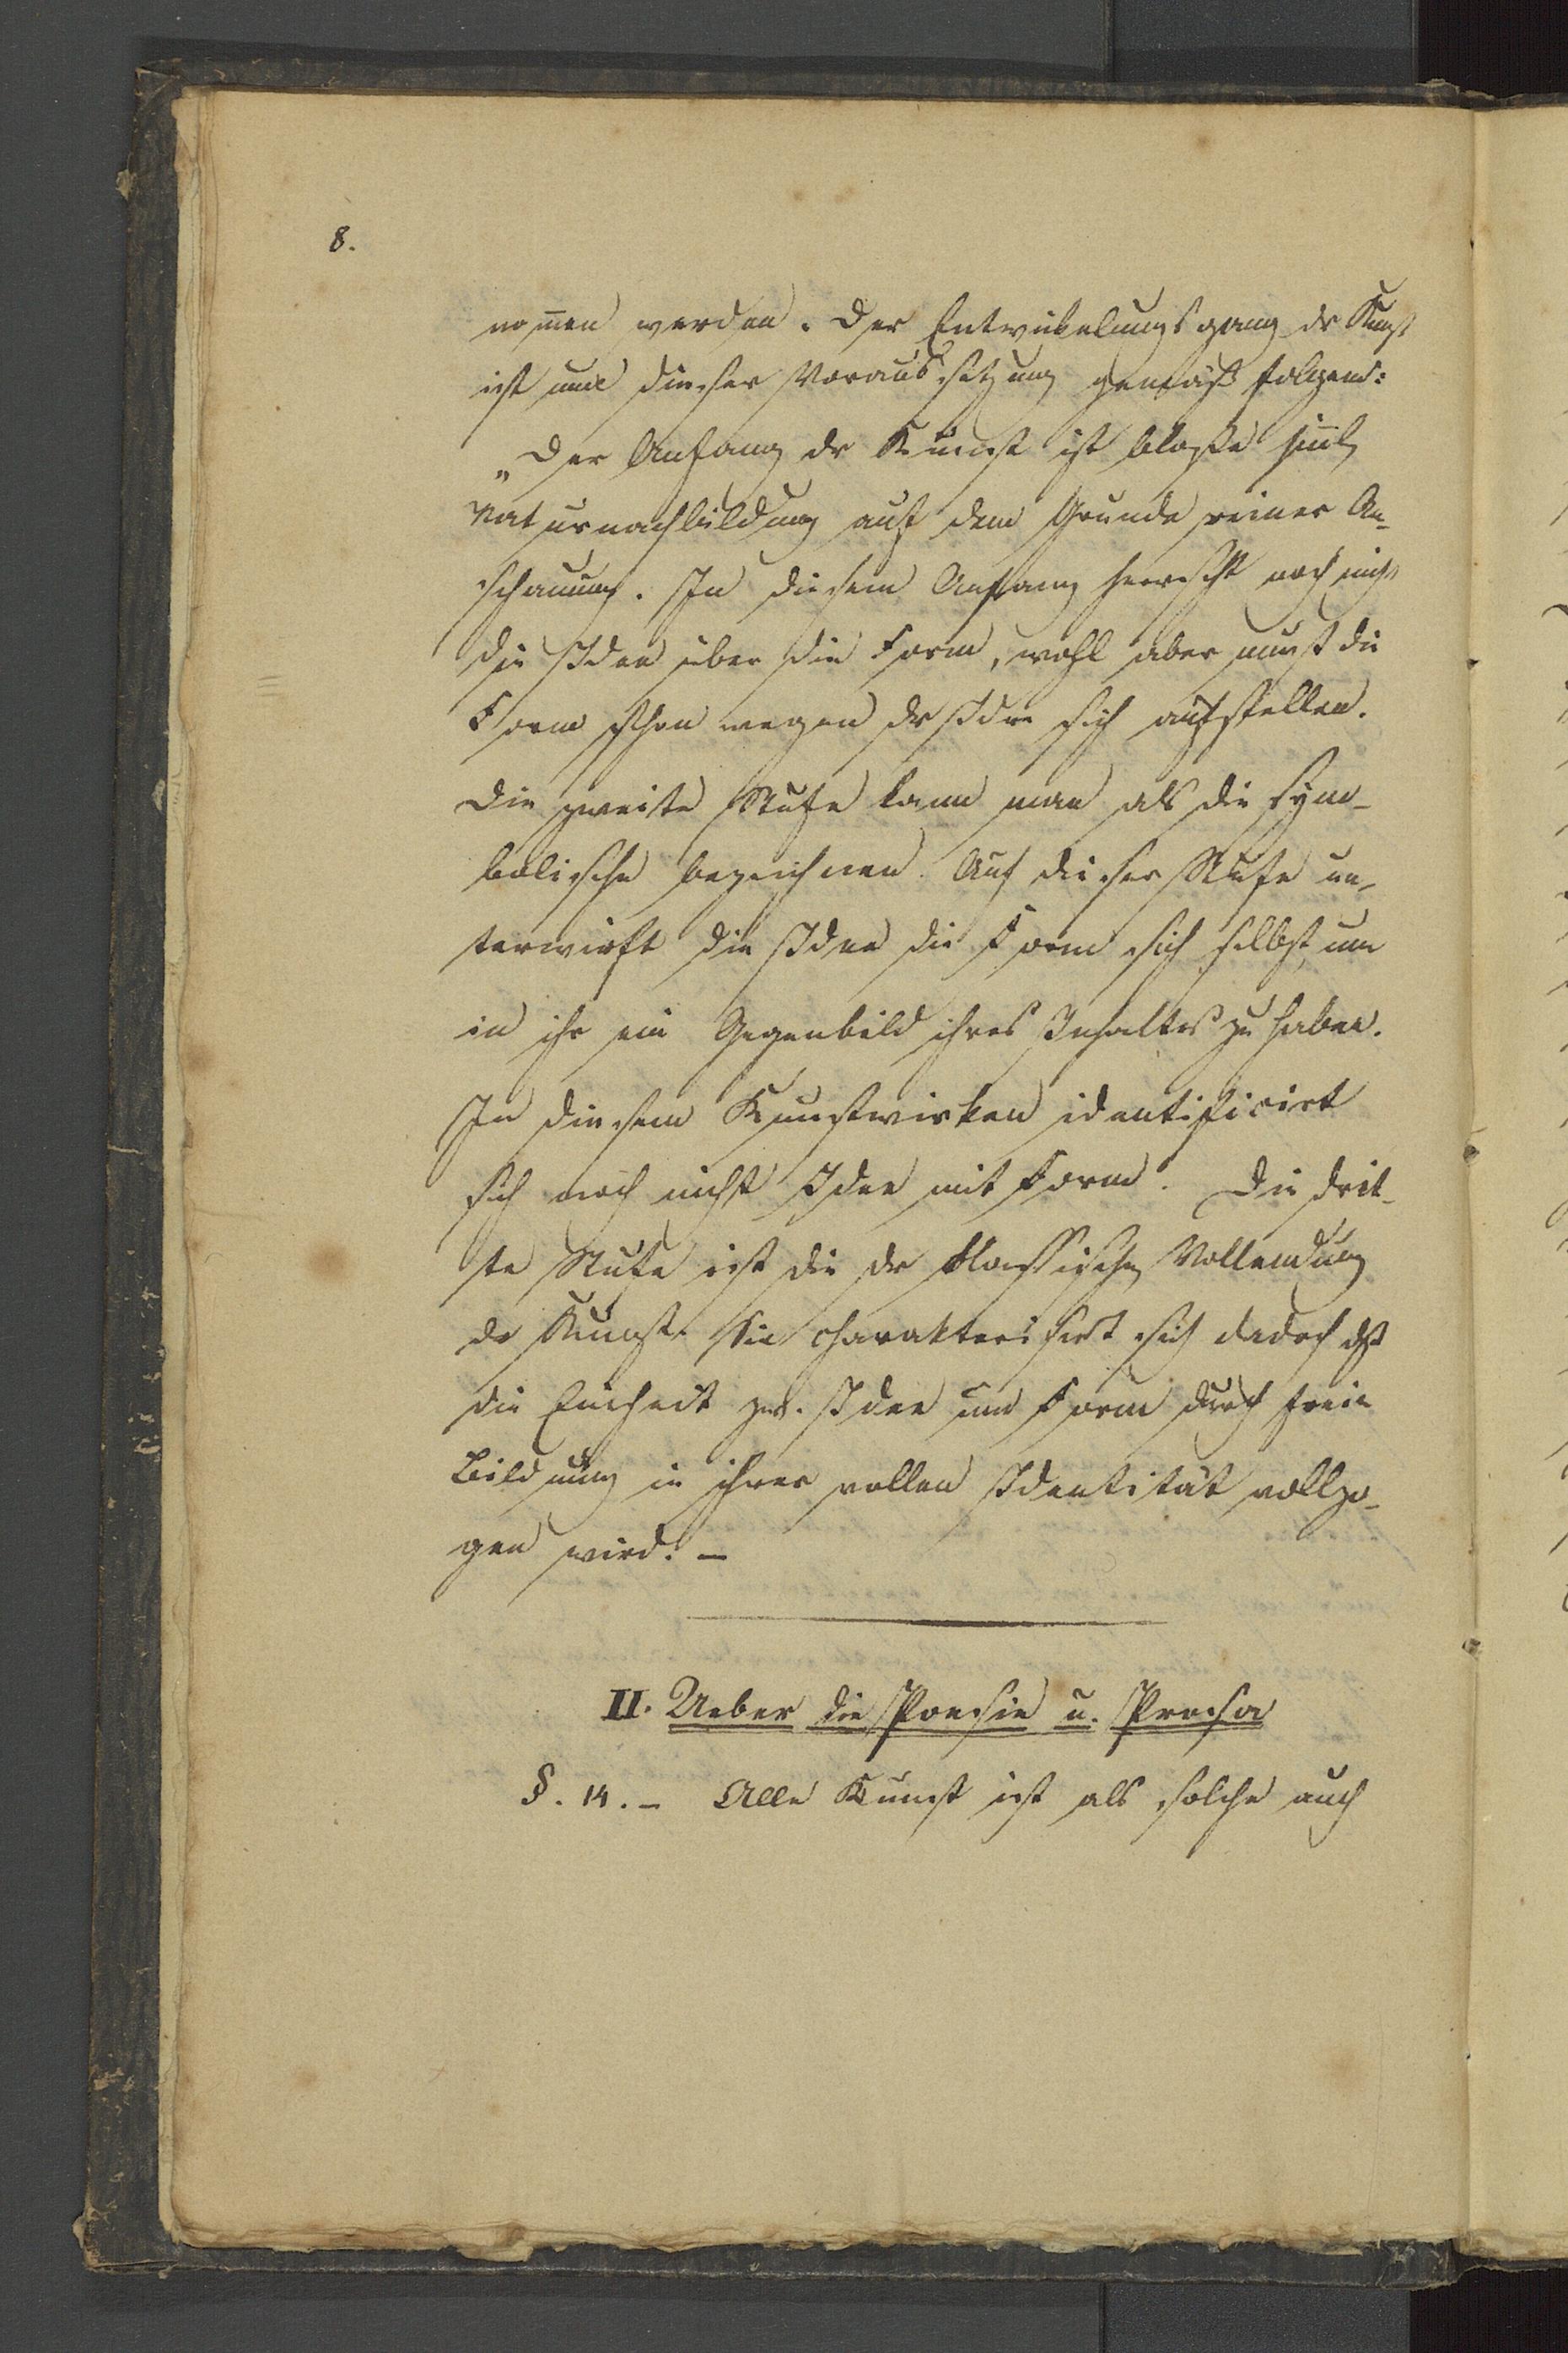 8.
nom̅en werden. Der Entwickelungsgang dr Kunst
ist nun dieser Voraussetzung gemäß folgend:
„Der Anfang dr Kunst ist bloße sinnl.
Naturnachbildung auf dem Grunde reiner An-
schauung. In diesem Anfang herrscht noch nicht
die Idee über die Form, wohl aber muß die
Form schon wegen dr Idee sich aufstellen.
Die zweite Stufe kann man als die sym-
bolische bezeichnen. Auf dieser Stufe un-
terwirft die Idee die Form sich selbst, um
in ihr ein Gegenbild ihres Inhaltes zu haben.
In diesem Kunstwirken identificirt
sich noch nicht Idee mit Form. Die drit-
te Stufe ist die dr klassischen Vollendung
dr Kunst. Sie charakterisirt sich dadch dß
die Einheit zw. Idee und Form durch freie
Bildung in ihrer vollen Identität vollzo-
gen wird. –
II. Ueber die Poesie u. Prosa
§. 14. – Alle Kunst ist als solche auch